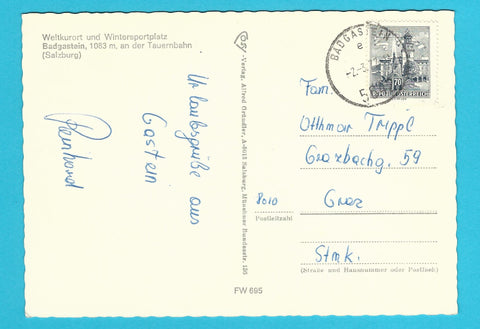 Weltkurort und Wintersportplatz
Badgastein, 1083 m, an der Tauernbahn
(Salzburg)
Urlaubsgrüße aus
Gastein
Reinhard
-Verlag, Alfred Gründler, A-5013 Salzburg, Münchner Bundesstr. 126
BADGASTEIN
e
-2.-3.
70
REPUBLIK ÖSTERREICH
Fam.
Otthmar Trippl
Grazbachg. 59
8010 Graz
Postleitzahl
Stmk.
(Straße und Hausnummer oder Postfach)
FW 695